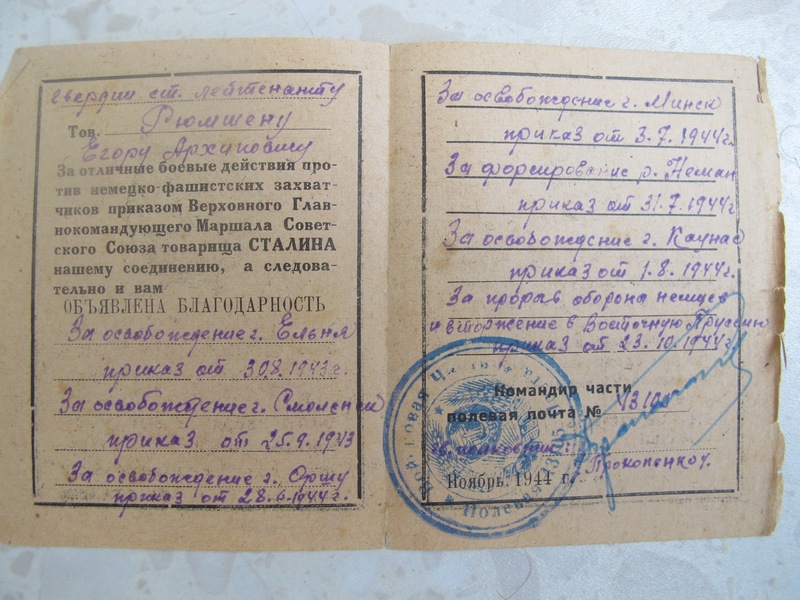 гвардии ст. лейтенанту
Тов. Рюмшену
Егору Архиповичу
За отличные боевые действия про-
тив немецко-фашистских захват-
чиков приказом Верховного Глав-
нокомандующего Маршала Совет-
ского Союза товарища СТАЛИНА
нашему соединению, а следова-
тельно и вам
ОБЪЯВЛЕНА БЛАГОДАРНОСТЬ
За освобождение г. Ельня
приказ от 30.8.1943г.
За освобождение г. Смоленск
приказ от 25.9.1943
За освобождение г. Оршу
приказ от 28.6.1944г.
За освобождение г. Минск
приказ от 3.7.1944г.
За форсирование р. Неман
приказ от 31.7.1944г
За освобождение г. Каунас
приказ от 1.8.1944г.
За прорыв оборона немцев
и вторжение в Восточную Пруссию
приказ от 23.10.1944г.
Командир части
полевая почта №
гв. полковник
Прокопенко
Ноябрь 1944 г.
Полевая